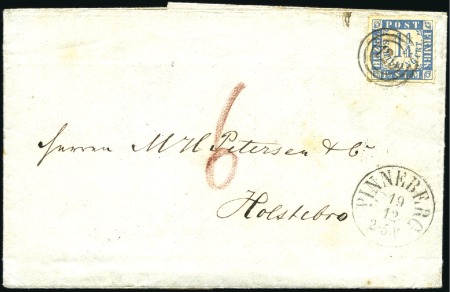 POST
FRMRK
1¼
6
Herren M H Petersen & Co
Holstebro
PINNEBERG
19
12